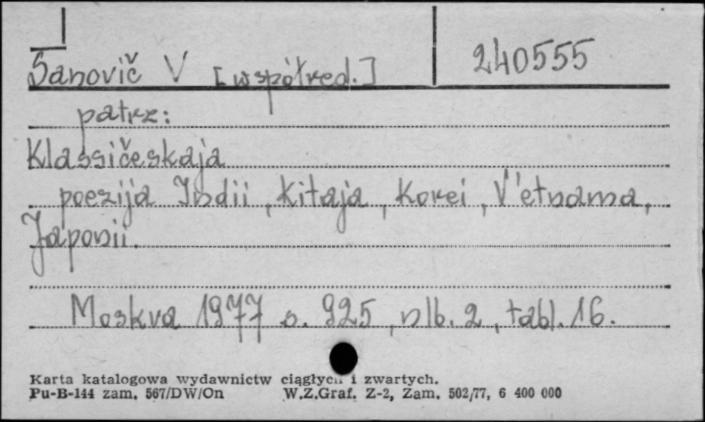 Sanovič V [współred.] 240555
patrz:
Klassičeskaja
poezija Indii, Kitaja, Korei, V'etnama,
Japonii.
Moskva 1977 s. 925, nlb. 2, tabl. 16.
Karta katalogowa wydawnictw ciągłych i zwartych.
Pu-B-144 zam. 567/DW/On W.Z.Graf. Z-2, Zam. 502/77, 6 400 000